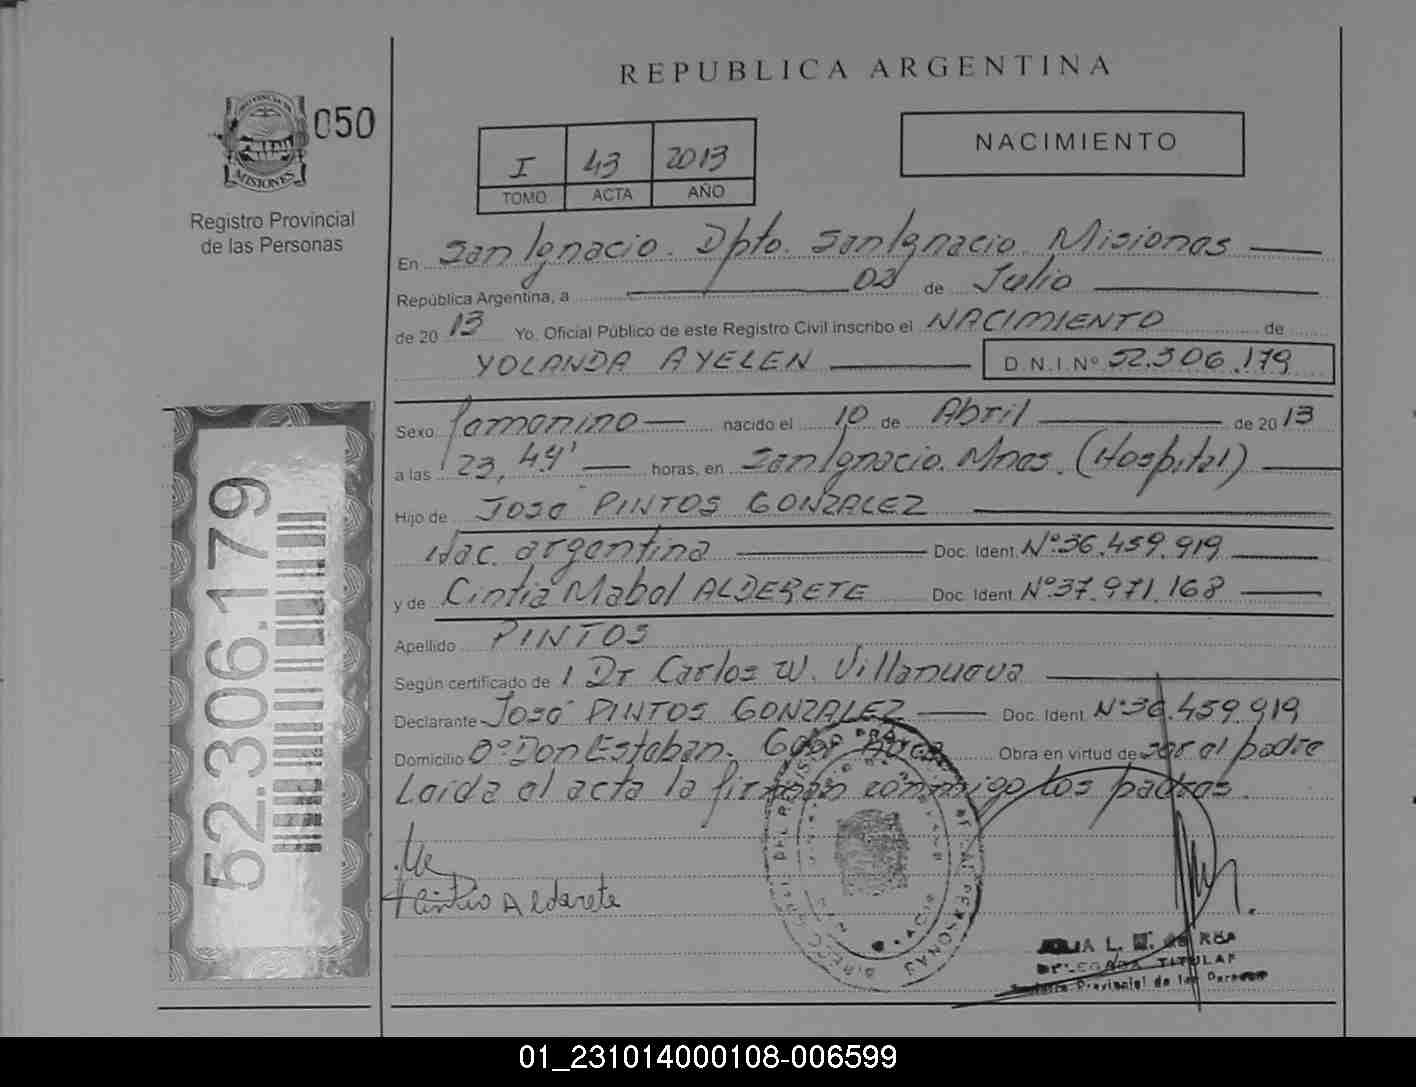 REPUBLICA ARGENTINA
PROVINCIA DE
MISIONES
050
Registro Provincial
de las Personas
I 43 2013
TOMO ACTA AÑO
NACIMIENTO
En San Ignacio. Dpto. San Ignacio. Misiones
República Argentina, a 03 de Julio
de 2013 Yo, Oficial Público de este Registro Civil inscribo el NACIMIENTO de
YOLANDA AYELEN D.N.I.Nº 52.306.179
Sexo femenino nacido el 10 de Abril de 2013
a las 23,49' horas, en San Ignacio. Mnes. (Hospital)
Hijo de José PINTOS GONZALEZ
Nac. argentina Doc. Ident. Nº36.459.919
y de Cintia Mabel ALDERETE Doc. Ident. Nº37.971.168
Apellido PINTOS
Según certificado de Dr Carlos W. Villanueva
Declarante José PINTOS GONZALEZ Doc. Ident. Nº36.459.919
Domicilio Bº Don Esteban. Obra en virtud de ser el padre
Leida el acta la firman conmigo los padres.
Cintia Alderete
DELEGADA TITULAR
Provincial de las Personas
52.306.179
01_231014000108-006599